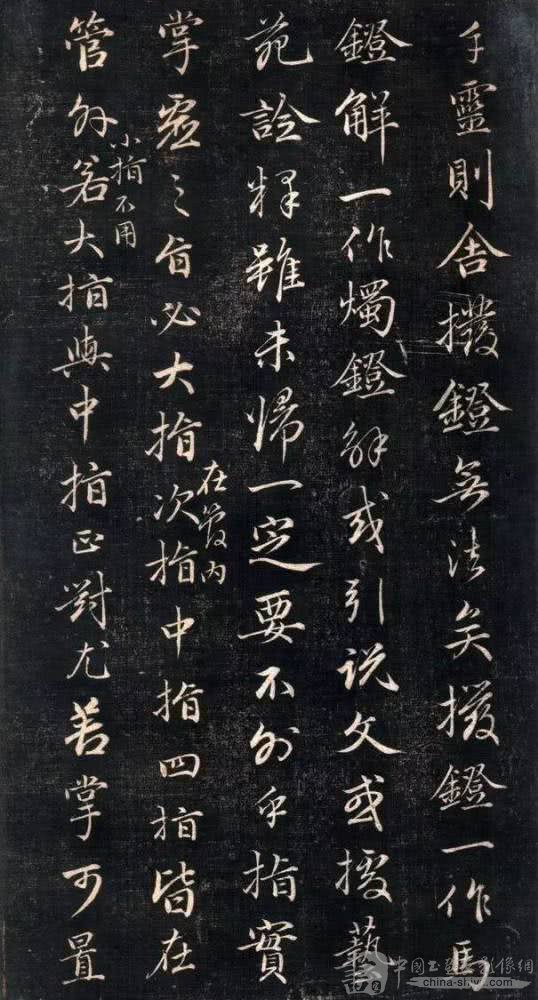 手靈則舍撥鐙無法矣撥鐙一作馬
鐙解一作燭鐙解或引說文或援藝
苑詮釋雖未歸一定要不外乎指實
在管內
掌虛之旨必大指次指中指四指皆在
小指不用
管外若大指與中指正對尤善掌可置